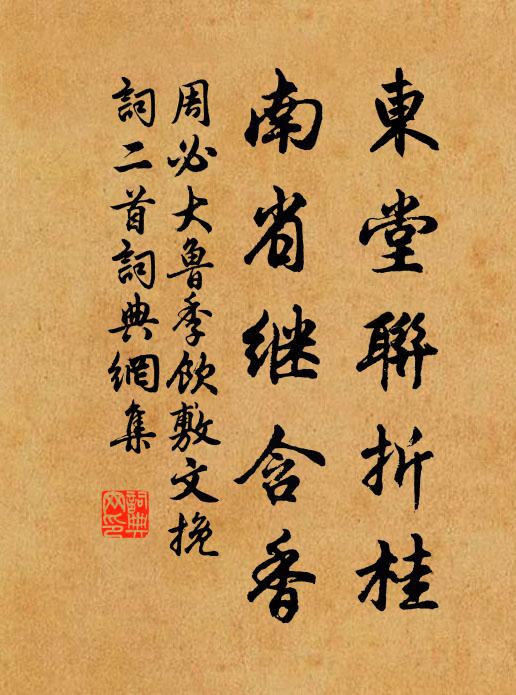 東堂聯折桂
南省继含香
周必大魯季欽敷文挽
詞二首詞典網集
詞典
网印